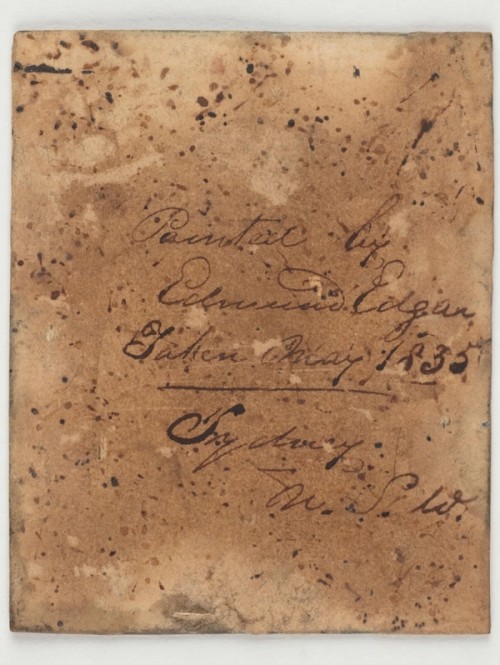 Painted by
Edmund Edgar
Taken May 1835
Sydney.
N. S. W.